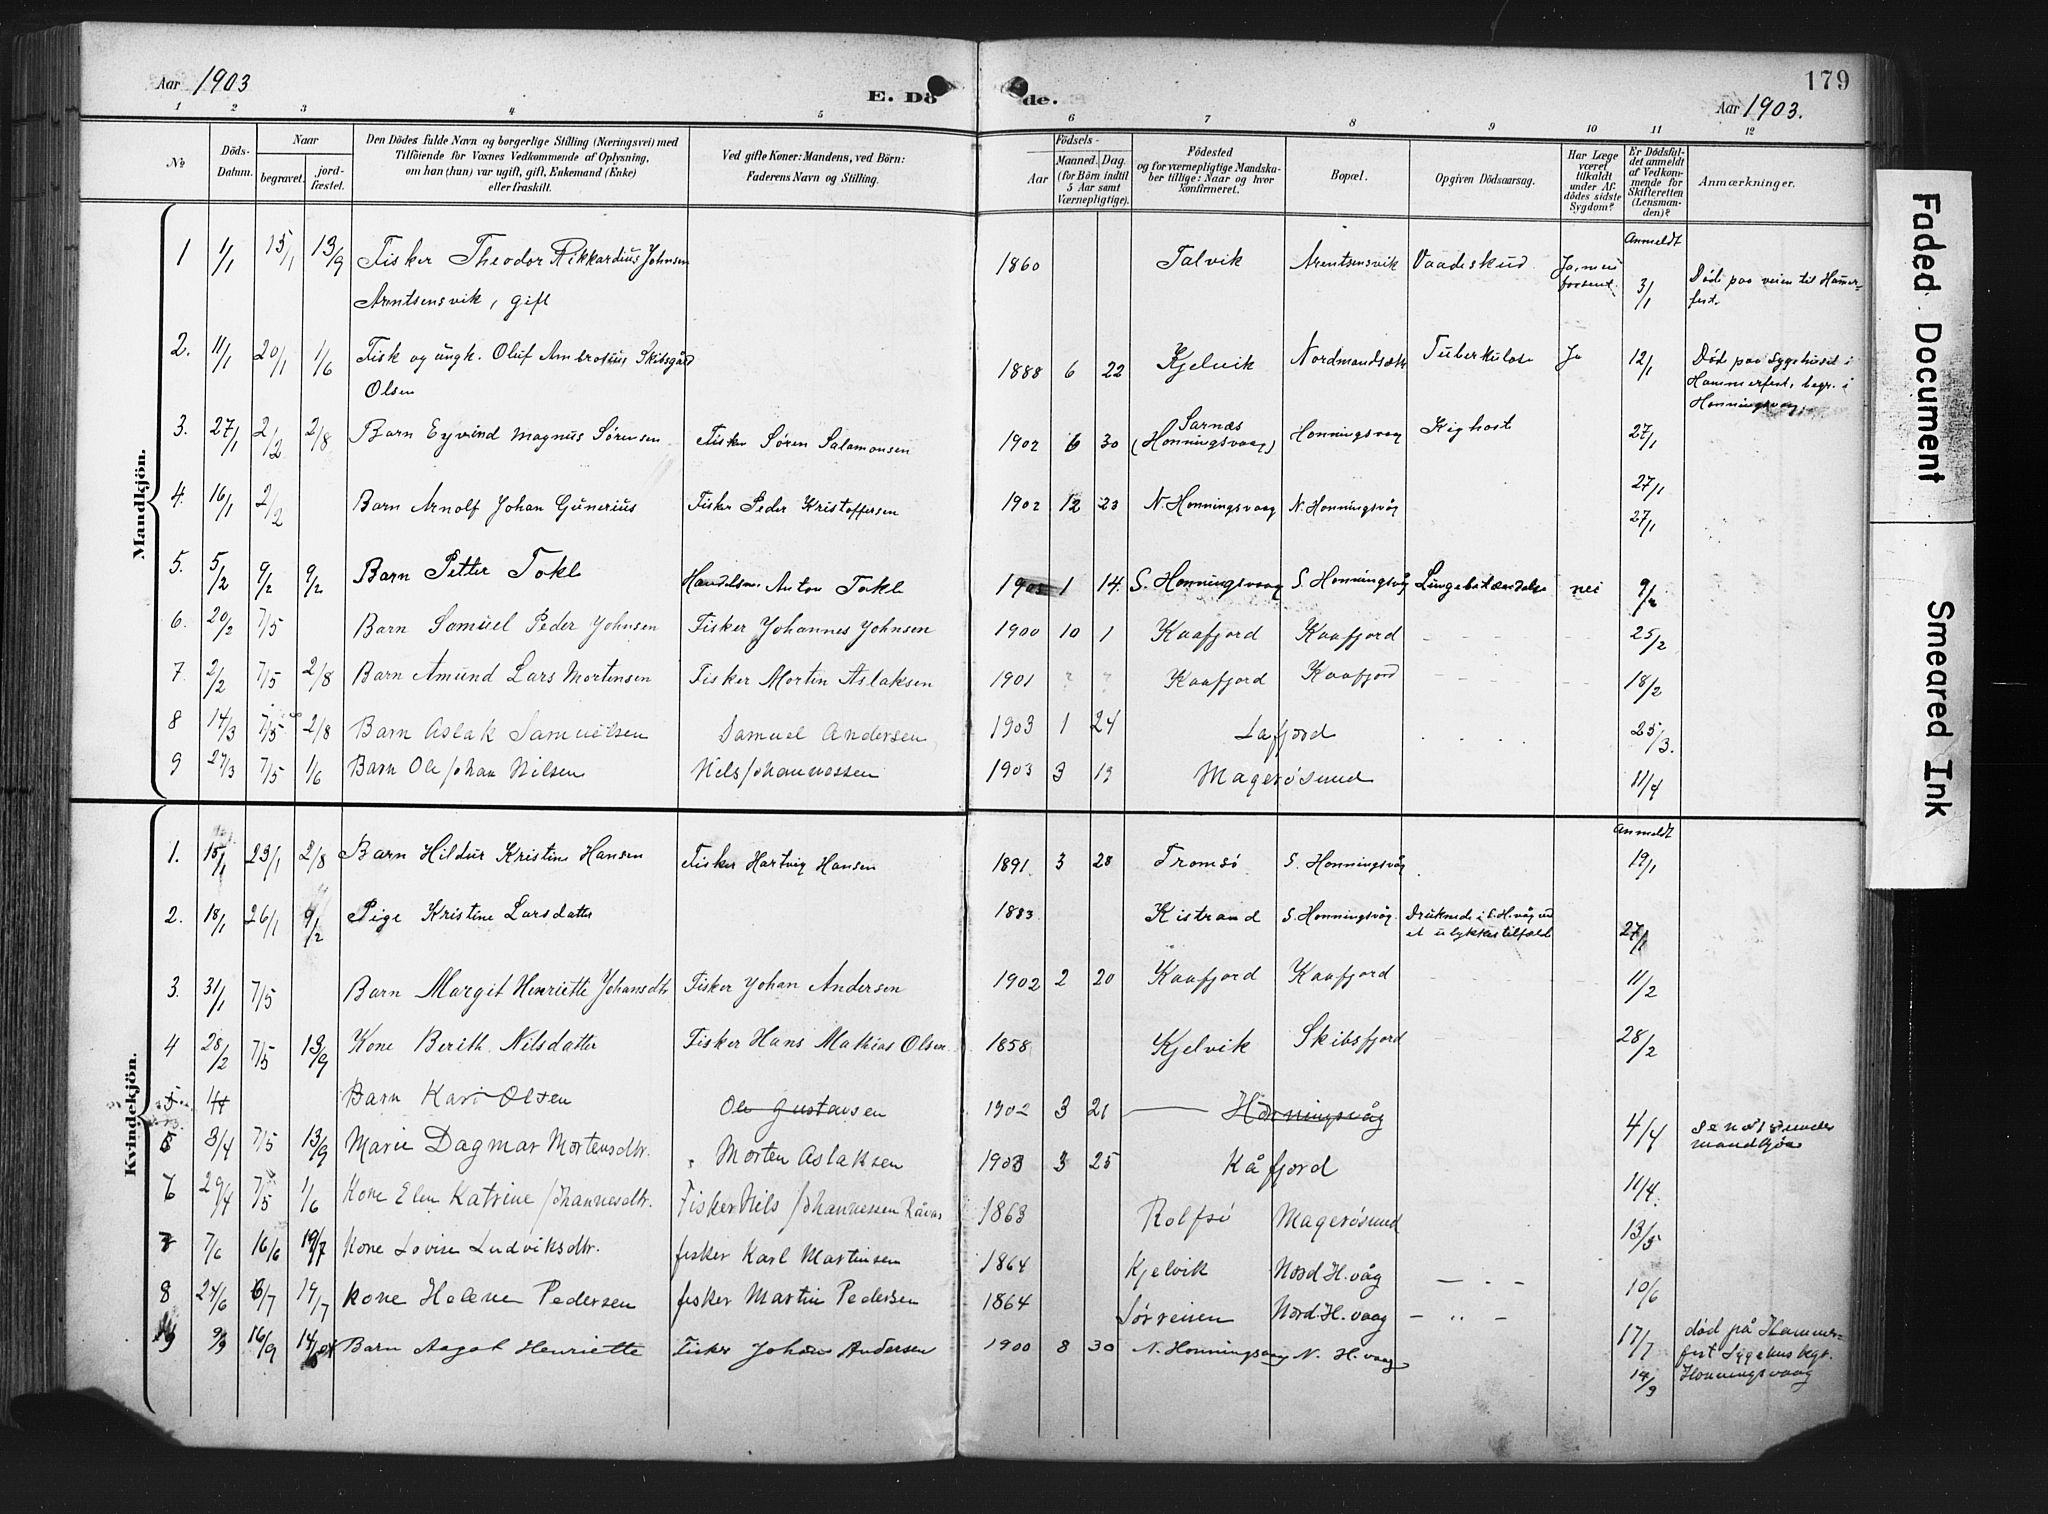 Aar 1903
E. Dö de.
179
Aar 1903.
1 2 3 4 5 6 7 8 9 10 11 12
No
Döds-Datum.
Naar
begravet.
jord-fæstet.
Den Dödes fulde Navn og borgerlige Stilling (Næringsvei) med
Tilföiende for Voxnes Vedkommende af Oplysning,
om han (hun) var ugift, gift, Enkemand (Enke)
eller fraskilt.
Ved gifte Koner: Mandens, ved Börn:
Faderens Navn og Stilling.
Födsels-
Aar
Maaned. Dag.
(for Börn indtil
5 Aar samt
Værnepligtige).
Födested
og for værnepligtige Mandska-
ber tillige: Naar og hvor
konfirmeret.
Bopæl.
Opgiven Dödsaarsag.
Har Læge
været
tilkaldt
under Af-
dödes sidste
Sygdom?
Er Dödsful-
det anmeldt
af Vedkom-
mende for
Skifteretten
(Lensman-
den)?
Anmærkninger.
Mandkjön.
Anmeldt
1 1/1 15/1 13/9 Fisker Theodor Rikkardius Johnsen 1860 Talvik Arentsensvik Vaadeskud Ja, men
Arentsensvik, gift forsent. 3/1 Döde paa veien til Hamer-
fest.
2. 11/1 20/1 1/6 Fisk og ungk. Oluf Ambrosius Skibsgård 1888 6 22 Kjelvik Nordmandsæt Tuberkulose Ja 12/1 Död paa Sygehuset i
Olsen Hammerfest, begr. i
Honningsvaag.
3. 27/1 2/2 2/8 Barn Eyvind Magnus Sörensen Fisker Sören Salamonsen 1902 6 30 Sarnæs
(Honningsvaag) Honningsvaag Kighost 27/1
4. 16/1 2/2 Barn Arnolf Johan Gunerius Fisker Peder Kristoffersen 1902 12 23 N. Honningsvaag N. Honningsvåg 27/1
27/1
5. 5/2 9/2 9/2 Barn Petter Tokle Handelsm. Anton Tokle 1903 1 14. S. Honningsvaag S. Honningsvåg Lungebetændelse nei 9/2
6. 20/2 7/5 Barn Samuel Peder Johnsen Fisker Johannes Johnsen 1900 10 1 Kaafjord Kaafjord 25/2
7. 2/2 7/5 2/8 Barn Amund Lars Mortensen Fisker Mortin Aslaksen 1901 ? ? Kaafjord Kaafjord 18/2
8 14/3 7/5 2/8 Barn Aslak Samuelsen Samuel Andersen 1903 1 24 Lafjord 25/3.
9 27/3 7/5 1/6 Barn Ole Johan Nilsen Nils Johannessen 1903 3 19 Magerösund 11/4
Kvindekjön.
Anmeldt
1. 15/1 23/1 2/8 Barn Hildur Kristine Hansen Fisker Hartvig Hansen 1891 3 28 Tromsö S. Honningsvåg 19/1
2. 18/1 26/1 9/2 Pige Kristine Larsdatter 1883 Kistrand S. Honningsvåg. Druknede i S. H.våg ved
et ulykkestilfæld 27/1
3. 31/1 7/5 Barn Margit Henriette Johansdtr Fisker Johan Andersen 1902 2 20 Kaafjord Kaafjord 11/2
4 28/2 7/5 13/9 Kone Berith Nilsdatter Fisker Hans Mathias Olsen 1858 Kjelvik Skibsfjord 28/2
5 Barn Kari Olsen Ole Gustavsen 1902 3 21 Honningsvåg 4/4
5 3/4 7/5 13/9 Marie Dagmar Mortensdtr. " Morten Aslaksen 1903 3 25 Kåfjord 11/4.
6 29/4 7/5 1/6 Kone Elen Katrine Johannesdtr. Fisker Nils Johannessen 1863 Rolfsö Magerösund 13/5
7 7/6 16/6 19/7 Kone Lovise Ludviksdtr. fisker Karl Martinsen 1864 Kjelvik Nord H.våg 10/6
8 24/6 6/7 19/7 kone Helene Pedersen fisker Martin Pedersen 1864 Sörreisen Nord. H. vaag 17/7 död på Hammer-
fest Sygehus begr.
Honningsvaag
9 9/9 16/9 14/8 Barn Aagot Henriette Fisker Johan Andersen 1900 8 30 N. Honningsvaag N. H. vaag 14/9
Faded Document
Smeared Ink